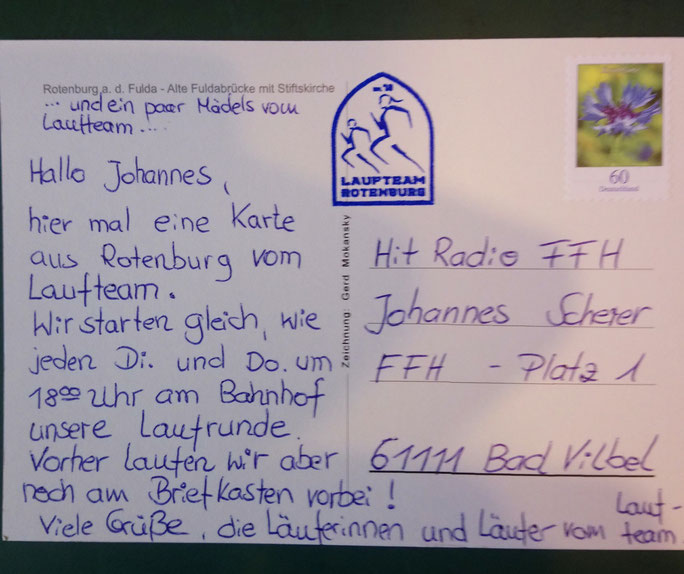 Rotenburg a. d. Fulda - Alte Fuldabrücke mit Stiftskirche
... und ein paar Mädels vom
Laufteam....
Hallo Johannes,
hier mal eine Karte
aus Rotenburg vom
Laufteam.
Wir starten gleich, wie
jeden Di. und Do. um
18⁰⁰ Uhr am Bahnhof
unsere Laufrunde.
Vorher laufen wir aber
noch am Briefkasten vorbei!
Viele Grüße, die Läuferinnen und Läufer vom Lauf-
team
LAUFTEAM
ROTENBURG
Zeichnung: Gerd Mokansky
60
Deutschland
Hit Radio FFH
Johannes Scherer
FFH - Platz 1
61111 Bad Vilbel